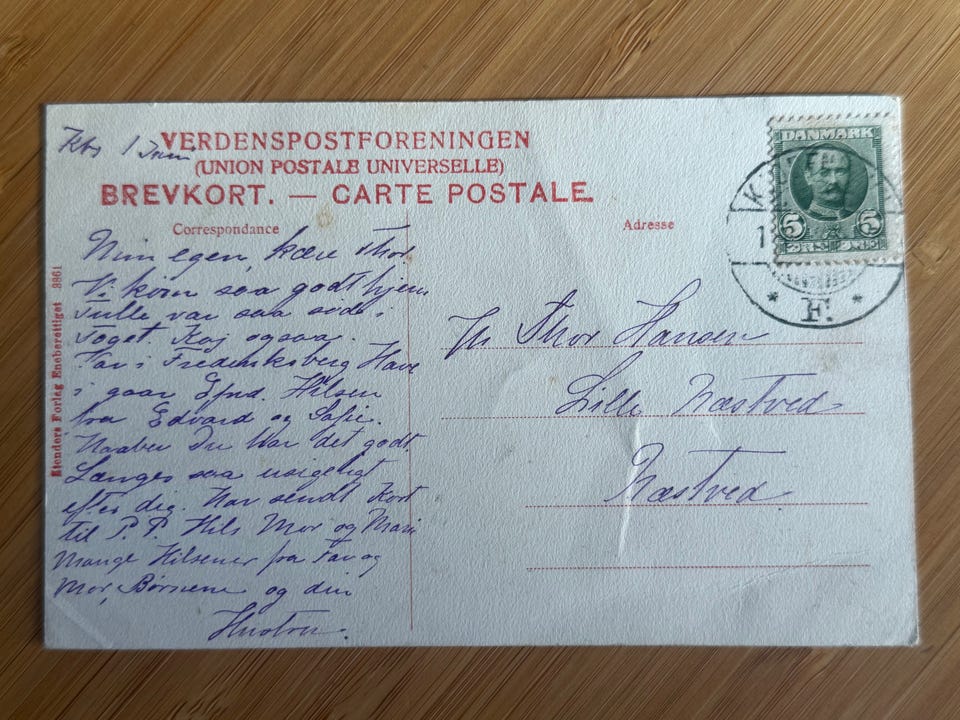 Kbh 1 Juni
VERDENSPOSTFORENINGEN
(UNION POSTALE UNIVERSELLE)
BREVKORT. — CARTE POSTALE.
Correspondance
Adresse
DANMARK
5 5
K
1
F.
Stenders Forlag Eneberettiget 3861
Min egen, kære Thor.
Vi kom saa godt hjem
Tulle var saa sød i
Toget. Kaj ogsaa.
Var i Frederiksberg Have
i gaar Hilsen
fra Edvard og Sofie.
Haaber Du har det godt.
Længes saa usigeligt
efter dig. Har sendt Kort
til P. P. Hils Mor og Marie
Mange Hilsener fra Far og
Mor, Børnene og din
Hustru.
Hr Thor Hansen
Lille Næstved
Næstved